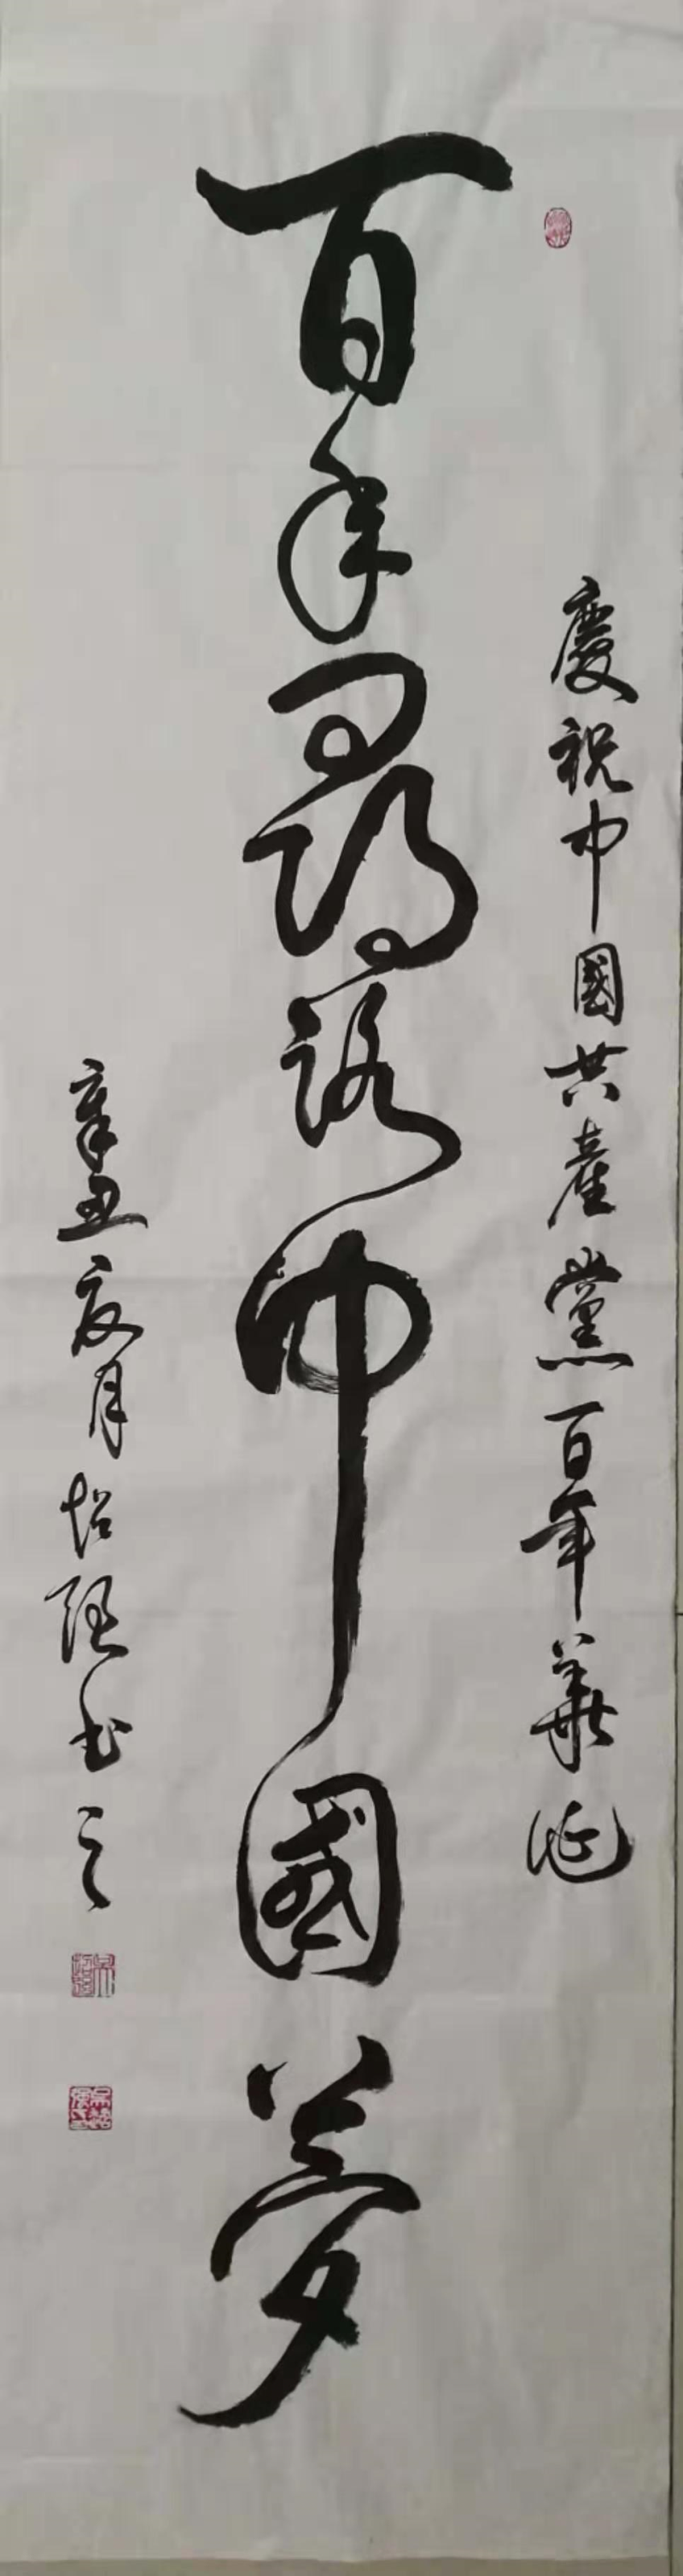 慶祝中國共產黨百年華誕
百年尋路中國夢
辛丑夏月强書之